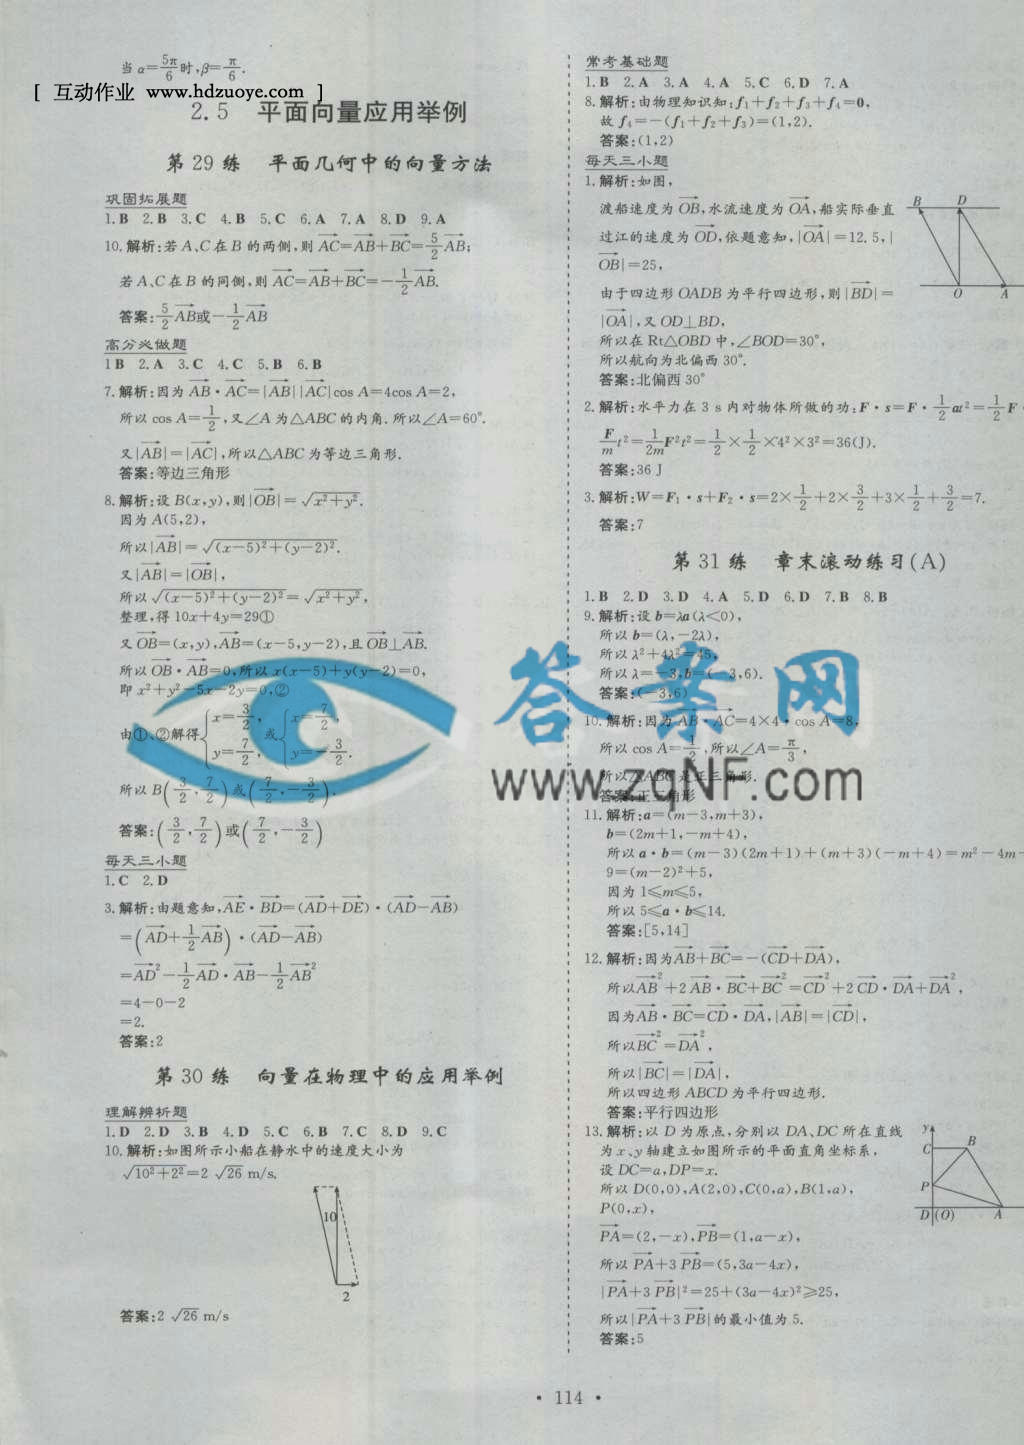 当 α=5π/6 时,β=π/6.
[ 互动作业 www.hdzuoye.com ]
2.5 平面向量应用举例
第 29 练 平面几何中的向量方法
巩固拓展题
1.B 2.B 3.C 4.B 5.C 6.A 7.A 8.D 9.A
10.解析:若 A、C 在 B 的两侧,则 AC=AB+BC=5/2 AB;
若 A、C 在 B 的同侧,则 AC=AB+BC=-1/2 AB.
答案:5/2 AB或-1/2 AB
高分必做题
1 B 2.A 3.C 4.C 5.B 6.B
7.解析:因为 AB·AC=|AB||AC|cos A=4cos A=2,
所以 cos A=1/2,又∠A 为△ABC 的内角.所以∠A=60°.
又|AB|=|AC|,所以△ABC 为等边三角形.
答案:等边三角形
8.解析:设 B(x,y),则|OB|=√(x²+y²).
因为 A(5,2),
所以|AB|=√((x-5)²+(y-2)²).
又|AB|=|OB|,
所以√((x-5)²+(y-2)²)=√(x²+y²),
整理,得 10x+4y=29①
又 OB=(x,y),AB=(x-5,y-2),且 OB⊥AB.
所以 OB·AB=0,所以 x(x-5)+y(y-2)=0,
即 x²+y²-5x-2y=0,②
由①、②解得{x=3/2, y=7/2, 或{x=7/2, y=-3/2.
所以 B(3/2,7/2)或(7/2,-3/2),
答案:(3/2,7/2)或(7/2,-3/2)
每天三小题
1.C 2.D
3.解析:由题意知,AE·BD=(AD+DE)·(AD-AB)
=(AD+1/2 AB)·(AD-AB)
=AD²-1/2 AD·AB-1/2 AB²
=4-0-2
=2.
答案:2
第 30 练 向量在物理中的应用举例
理解辨析题
1.D 2.D 3.B 4.D 5.C 6.B 7.C 8.D 9.C
10.解析:如图所示小船在静水中的速度大小为
√(10²+2²)=2√26 m/s.
10
2
答案:2√26 m/s
常考基础题
1.B 2.A 3.A 4.A 5.C 6.D 7.A
8.解析:由物理知识知:f₁+f₂+f₃+f₄=0,
故 f₄=-(f₁+f₂+f₃)=(1,2).
答案:(1,2)
每天三小题
1.解析:如图,
渡船速度为 OB,水流速度为 OA,船实际垂直
过江的速度为 OD,依题意知,|OA|=12.5,|
OB|=25,
由于四边形 OADB 为平行四边形,则|BD|=
|OA|,又 OD⊥BD,
所以在 Rt△OBD 中,∠BOD=30°,
所以航向为北偏西 30°.
答案:北偏西 30°
B D
O A
2.解析:水平力在 3 s 内对物体所做的功:F·s=F·1/2 at²=1/2 F·
F/m t²=1/2m F²t²=1/2×1/2×4²×3²=36(J).
答案:36 J
3.解析:W=F₁·s+F₂·s=2×1/2+2×3/2+3×1/2+3/2=7.
答案:7
第 31 练 章末滚动练习(A)
1.B 2.B 3.C 4.A 5.D 6.D 7.B 8.B
9.解析:设 b=λa(λ<0),
所以 b=(λ,-2λ),
所以 λ²+4λ²=45,
所以 λ=-3,b=(-3,6).
答案:(-3,6)
10.解析:因为 AB·AC=4×4·cos A=8,
所以 cos A=1/2,所以∠A=π/3,
所以△ABC 是正三角形.
答案:正三角形
11.解析:a=(m-3,m+3),
b=(2m+1,-m+4),
所以 a·b=(m-3)(2m+1)+(m+3)(-m+4)=m²-4m+
9=(m-2)²+5,
因为 1≤m≤5,
所以 5≤a·b≤14.
答案:[5,14]
12.解析:因为AB+BC=-(CD+DA),
所以AB²+2 AB·BC+BC²=CD²+2 CD·DA+DA²,
因为AB·BC=CD·DA,|AB|=|CD|,
所以BC²=DA²,
所以|BC|=|DA|,
所以四边形 ABCD 为平行四边形.
答案:平行四边形
13.解析:以 D 为原点,分别以 DA、DC 所在直线
为 x、y 轴建立如图所示的平面直角坐标系,
设 DC=a,DP=x.
所以 D(0,0),A(2,0),C(0,a),B(1,a),
P(0,x),
PA=(2,-x),PB=(1,a-x),
所以 PA+3 PB=(5,3a-4x),
|PA+3 PB|²=25+(3a-4x)²≥25,
所以|PA+3 PB|的最小值为 5.
答案:5
y
C B
P
D (O) A
答案网
www.zqNF.com
· 114 ·